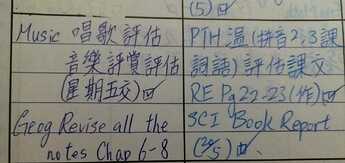 (5)
Music 唱歌評估
音樂評賞評估
(星期五交)
Geog Revise all the
notes Chap 6-8
PTH 溫(拼音2,3課
詞語)評估課文
RE Pg 22-23 (作)
SCI Book Report